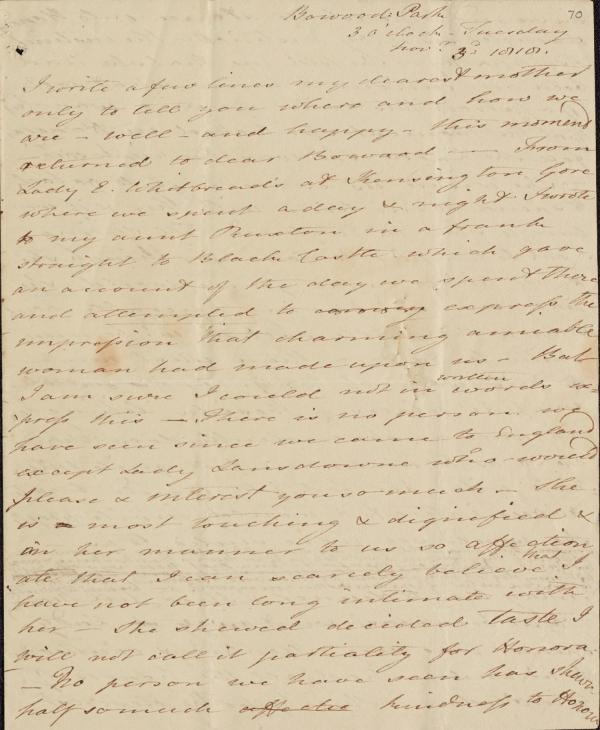 70
Bowood Park
3 o'clock - Tuesday
Nov.r 3.d 1818.
I write a few lines my dearest mother
only to tell you where and how we
are - well - and happy - this moment
returned to dear Bowood — From
Lady E. Whitbread's at Kensington Gore
where we spent a day & night I wrote
to my aunt Ruxton in a frank
straight to Black Castle which gave
an account of the day we spent there
and attempted to express the
impression that charming amiable
woman had made upon us - But
I am sure I could not in written words ex=
press this — There is no person we
have seen since we came to England
except Lady Lansdowne who would
please & interest you so much - She
is - most touching & dignified &
in her manner to us so affection
ate that I can scarcely believe that I
have not been long intimate with
her - She shewed decided taste I
will not call it partiality for Honora
- No person we have seen has shewn
half so much affectio kindness to Honora